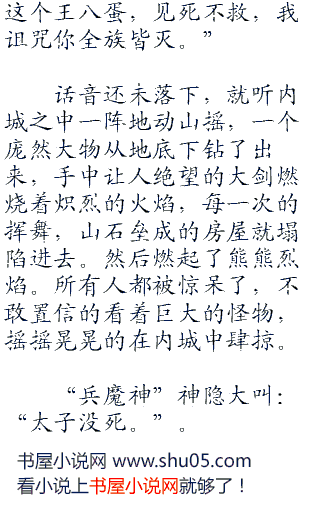 这个王八蛋，见死不救，我
诅咒你全族皆灭。”
话音还未落下，就听内
城之中一阵地动山摇，一个
庞然大物从地底下钻了出
来，手中让人绝望的大剑燃
烧着炽烈的火焰，每一次的
挥舞，山石垒成的房屋就塌
陷进去。然后燃起了熊熊烈
焰。所有人都被惊呆了，不
敢置信的看着巨大的怪物，
摇摇晃晃的在内城中肆掠。
“兵魔神”神隐大叫：
“太子没死。”。
书屋小说网 www.shu05.com
看小说上书屋小说网就够了！